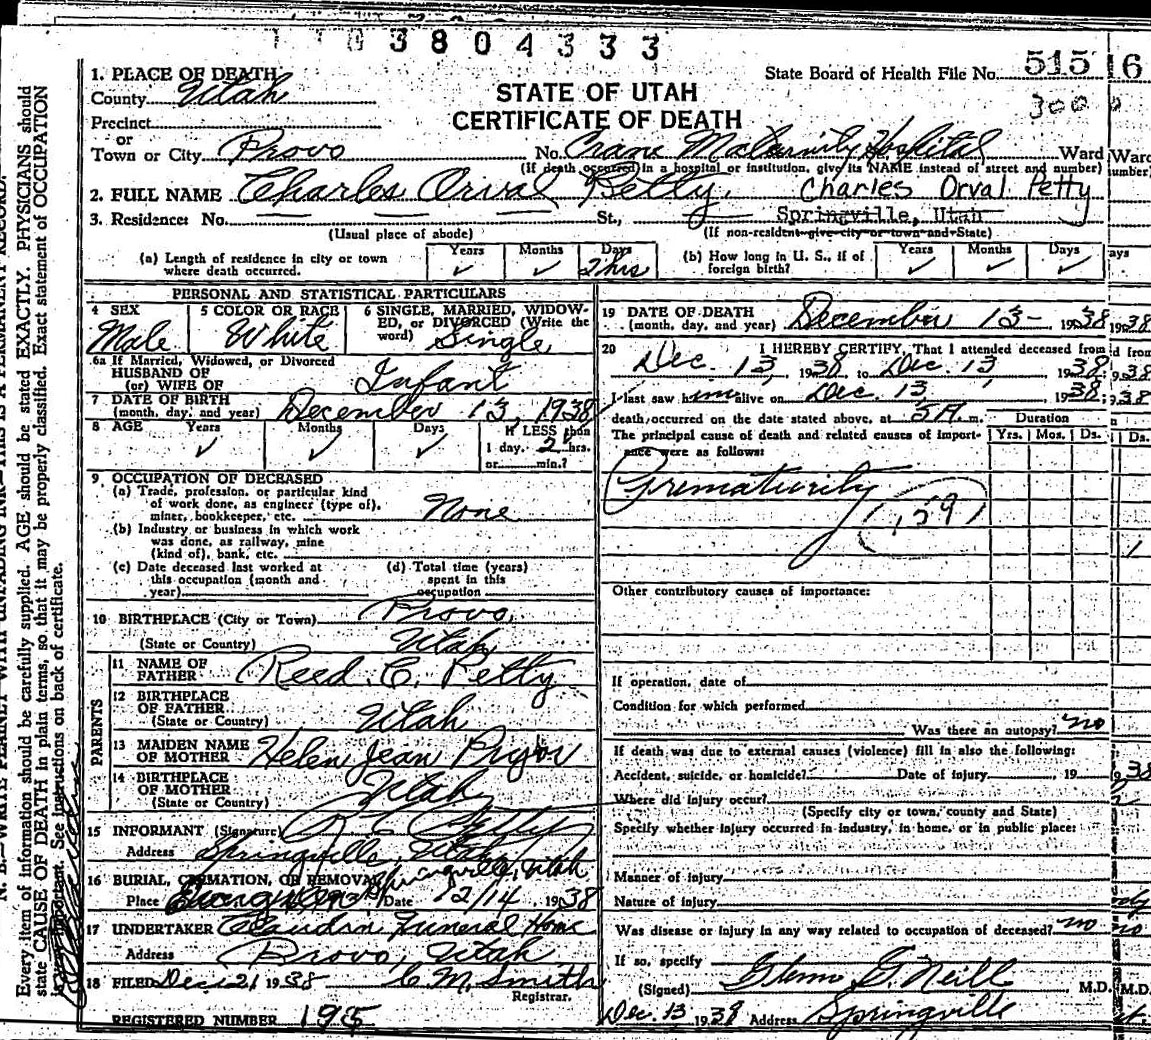 3804333
State Board of Health File No. 515
300
1. PLACE OF DEATH
County Utah
STATE OF UTAH
CERTIFICATE OF DEATH
Precinct
or
Town or City Provo No. Crane Maternity Hospital Ward
(If death occurred in a hospital or institution, give its NAME instead of street and number)
2. FULL NAME Charles Orval Petty Charles Orval Petty
3. Residence: No. St., Springville, Utah
(Usual place of abode) (If non-resident give city or town and State)
(a) Length of residence in city or town where death occurred. Years ✓ Months ✓ Days 2 hrs
(b) How long in U. S., if of foreign birth? Years ✓ Months ✓ Days ✓
PERSONAL AND STATISTICAL PARTICULARS
4 SEX Male
5 COLOR OR RACE White
6 SINGLE, MARRIED, WIDOWED, or DIVORCED (Write the word) Single
6a If Married, Widowed, or Divorced
HUSBAND OF
(or) WIFE OF Infant
7 DATE OF BIRTH
(month, day, and year) December 13, 1938
8 AGE Years ✓ Months ✓ Days ✓ If LESS than
1 day, 2 hrs.
or min.?
9 OCCUPATION OF DECEASED
(a) Trade, profession, or particular kind
of work done, as engineer (type of),
miner, bookkeeper, etc. None
(b) Industry or business in which work
was done, as railway, mine
(kind of), bank, etc.
(c) Date deceased last worked at
this occupation (month and
year)
(d) Total time (years)
spent in this
occupation
10 BIRTHPLACE (City or Town) Provo,
(State or Country) Utah
PARENTS
11 NAME OF
FATHER Reed C. Petty
12 BIRTHPLACE
OF FATHER
(State or Country) Utah
13 MAIDEN NAME
OF MOTHER Helen Jean Pryor
14 BIRTHPLACE
OF MOTHER
(State or Country) Utah
15 INFORMANT (Signature) R. C. Petty
Address Springville, Utah
16 BURIAL, CREMATION, OR REMOVAL Springville, Utah
Place Date 12/14, 1938
17 UNDERTAKER Claudin Funeral Home
Address Provo, Utah
18 FILED Dec 21 1938 C. M. Smith
Registrar.
REGISTERED NUMBER 195
19 DATE OF DEATH
(month, day, and year) December 13- 1938
20 I HEREBY CERTIFY, That I attended deceased from
Dec. 13, 1938, to Dec. 13, 1938
I last saw him alive on Dec. 13, 1938;
death occurred on the date stated above, at 5 A. m.
Duration
The principal cause of death and related causes of importance were as follows: Yrs. Mos. Ds.
Prematurity
159
Other contributory causes of importance:
If operation, date of
Condition for which performed
Was there an autopsy? no
If death was due to external causes (violence) fill in also the following:
Accident, suicide, or homicide? Date of injury , 19
Where did injury occur?
(Specify city or town, county and State)
Specify whether injury occurred in industry, in home, or in public place:
Manner of injury
Nature of injury
Was disease or injury in any way related to occupation of deceased? no
If so, specify
(Signed) Glenn G. Neill M.D.
Dec. 13 1938 Address Springville
Every item of information should be carefully supplied. AGE should be stated EXACTLY. PHYSICIANS should
state CAUSE OF DEATH in plain terms, so that it may be properly classified. Exact statement of OCCUPATION
important. See instructions on back of certificate.